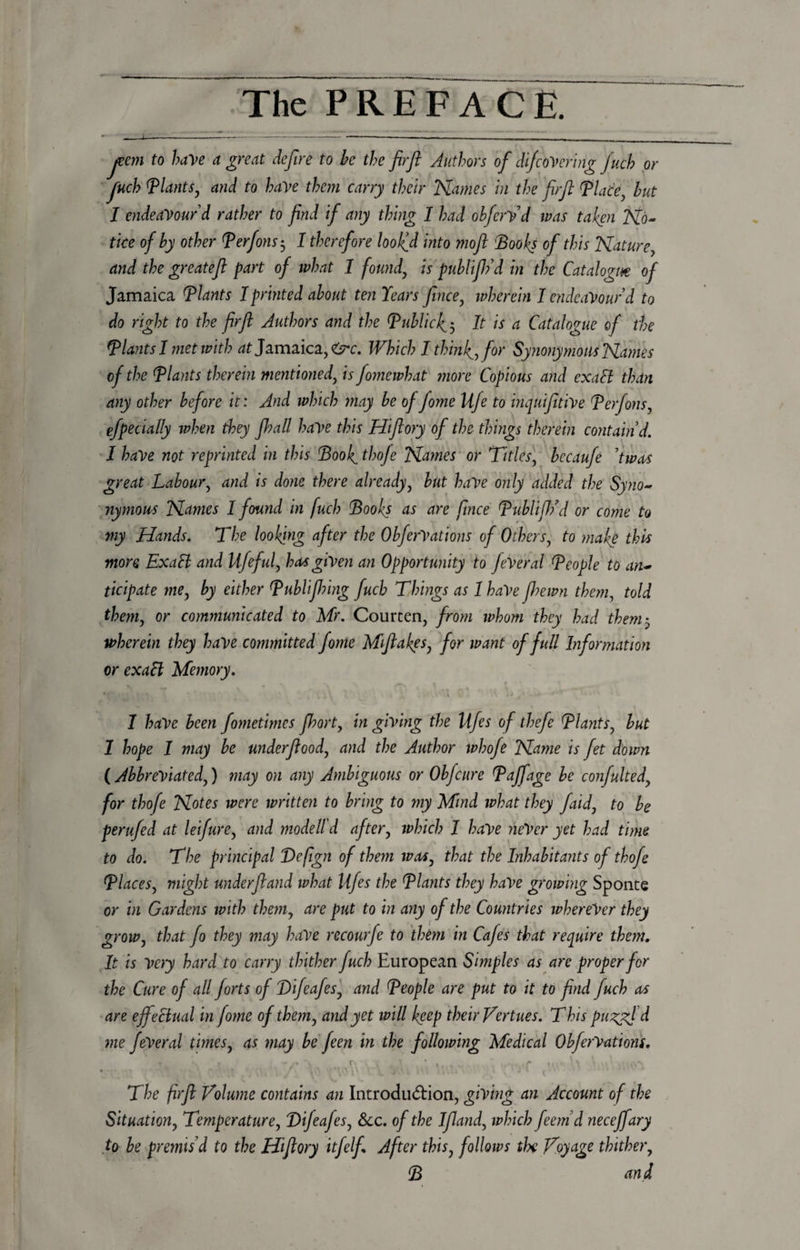 The PREFACE.
ſeem to have a great deſire to be the firſt Authors of diſcovering ſuch or
ſuch Plants, and to have them carry their Names in the firſt Place, but
I endeavour'd rather to find if any thing I had obſerv'd was taken No-
tice of by other Perſons; I therefore look'd into moſt Books of this Nature,
and the greateſt part of what I found, is publiſh'd in the Catalogue of
Jamaica Plants I printed about ten Years ſince, wherein I endeavour'd to
do right to the firſt Authors and the Publick; It is a Catalogue of the
Plants I met with at Jamaica, &c. Which I think, for Synonymous Names
of the Plants therein mentioned, is ſomewhat more Copious and exact than
any other before it: And which may be of ſome Uſe to inquiſitive Perſons,
eſpecially when they ſhall have this Hiſtory of the things therein contain'd.
I have not reprinted in this Book thoſe Names or Titles, becauſe 'twas
great Labour, and is done there already, but have only added the Syno-
nymous Names I found in ſuch Books as are ſince Publiſh'd or come to
my Hands. The looking after the Obſervations of Others, to make this
more Exact and Uſeful, has given an Opportunity to ſeveral People to an-
ticipate me, by either Publiſhing ſuch Things as I have ſhewn them, told
them, or communicated to Mr. Courten, from whom they had them;
wherein they have committed ſome Miſtakes, for want of full Information
or exact Memory.
I have been ſometimes ſhort, in giving the Uſes of theſe Plants, but
I hope I may be underſtood, and the Author whoſe Name is ſet down
(Abbreviated,) may on any Ambiguous or Obſcure Paſſage be conſulted,
for thoſe Notes were written to bring to my Mind what they ſaid, to be
peruſed at leiſure, and modell'd after, which I have never yet had time
to do. The principal Deſign of them was, that the Inhabitants of thoſe
Places, might underſtand what Uſes the Plants they have growing Sponte
or in Gardens with them, are put to in any of the Countries wherever they
grow, that ſo they may have recourſe to them in Caſes that require them.
It is very hard to carry thither ſuch European Simples as are proper for
the Cure of all ſorts of Diſeaſes, and People are put to it to find ſuch as
are effectual in ſome of them, and yet will keep their Vertues. This puzzl'd
me ſeveral times, as may be ſeen in the following Medical Obſervations.
The firſt Volume contains an Introduction, giving an Account of the
Situation, Temperature, Diſeaſes, &c. of the Iſland, which ſeem'd neceſſary
to be premis'd to the Hiſtory itſelf. After this, follows the Voyage thither,
B and